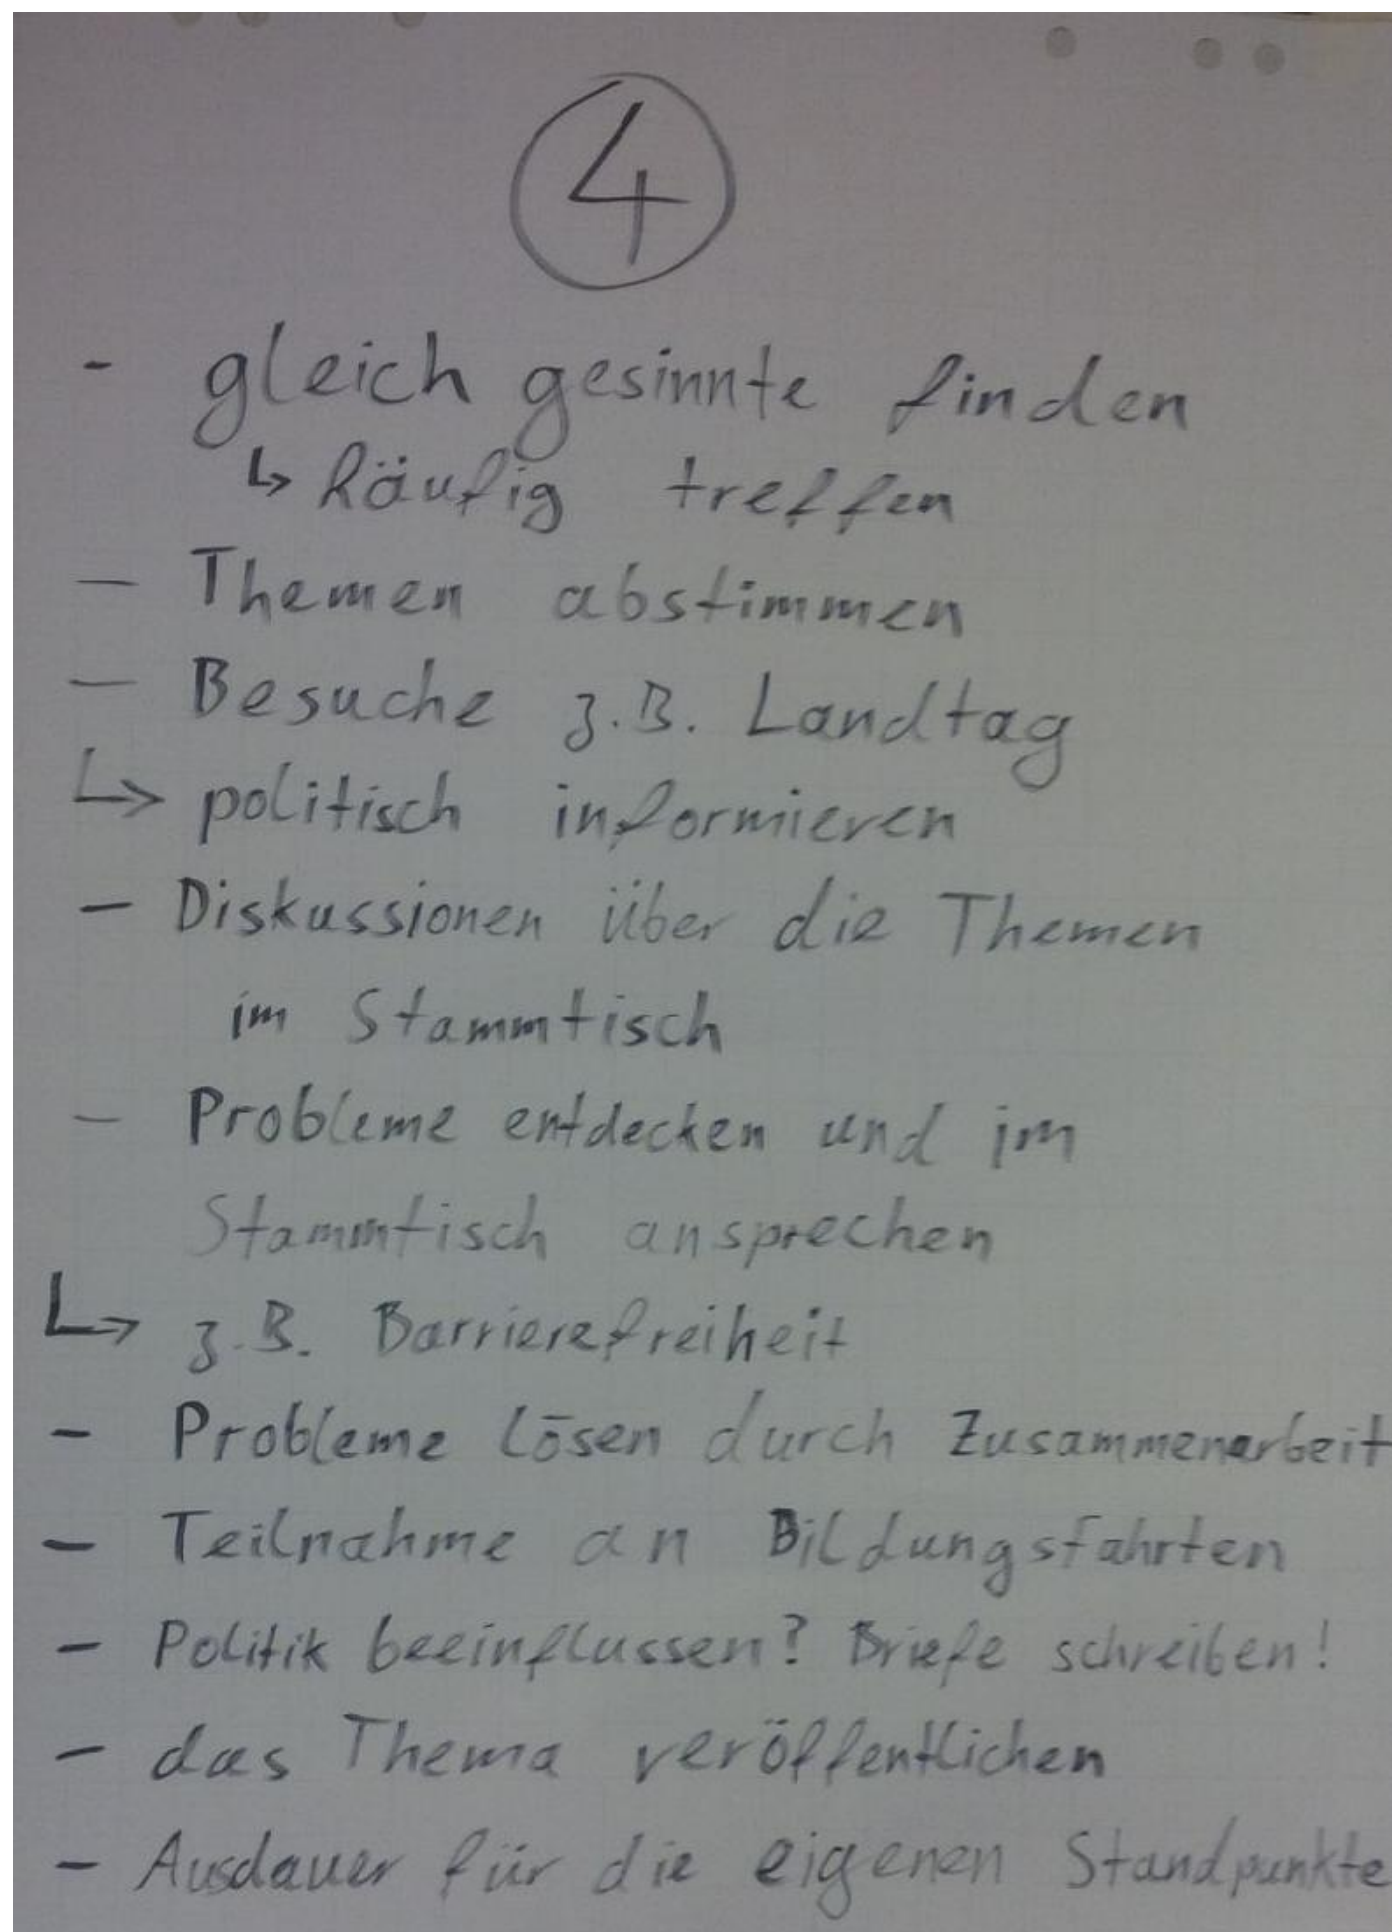 4
- gleich gesinnte finden
↳ häufig treffen
- Themen abstimmen
- Besuche z.B. Landtag
↳ politisch informieren
- Diskussionen über die Themen
im Stammtisch
- Probleme entdecken und im
Stammtisch ansprechen
↳ z.B. Barrierefreiheit
- Probleme lösen durch Zusammenarbeit
- Teilnahme an Bildungsfahrten
- Politik beeinflussen? Briefe schreiben!
- das Thema veröffentlichen
- Ausdauer für die eigenen Standpunkte